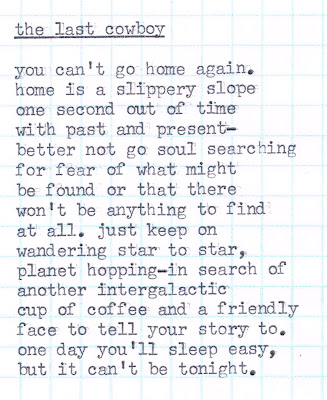 the last cowboy
you can't go home again.
home is a slippery slope
one second out of time
with past and present-
better not go soul searching
for fear of what might
be found or that there
won't be anything to find
at all. just keep on
wandering star to star,
planet hopping-in search of
another intergalactic
cup of coffee and a friendly
face to tell your story to.
one day you'll sleep easy,
but it can't be tonight.